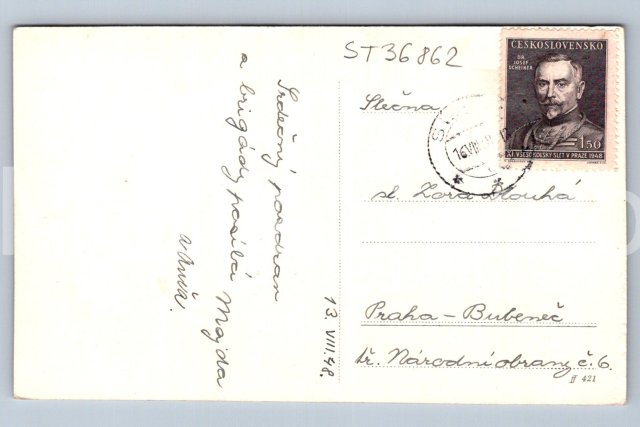 ST36862
Srdečný pozdrav
a brigády posílá Majda
13. VIII. 48.
ČESKOSLOVENSKO
DR.
JOSEF
SCHEINER
1.50
XI. VŠESOKOLSKÝ SLET V PRAZE 1948
Slečna
sl. Zora Dlouhá
Praha-Bubeneč
tř. Národní obrany č. 6.
421